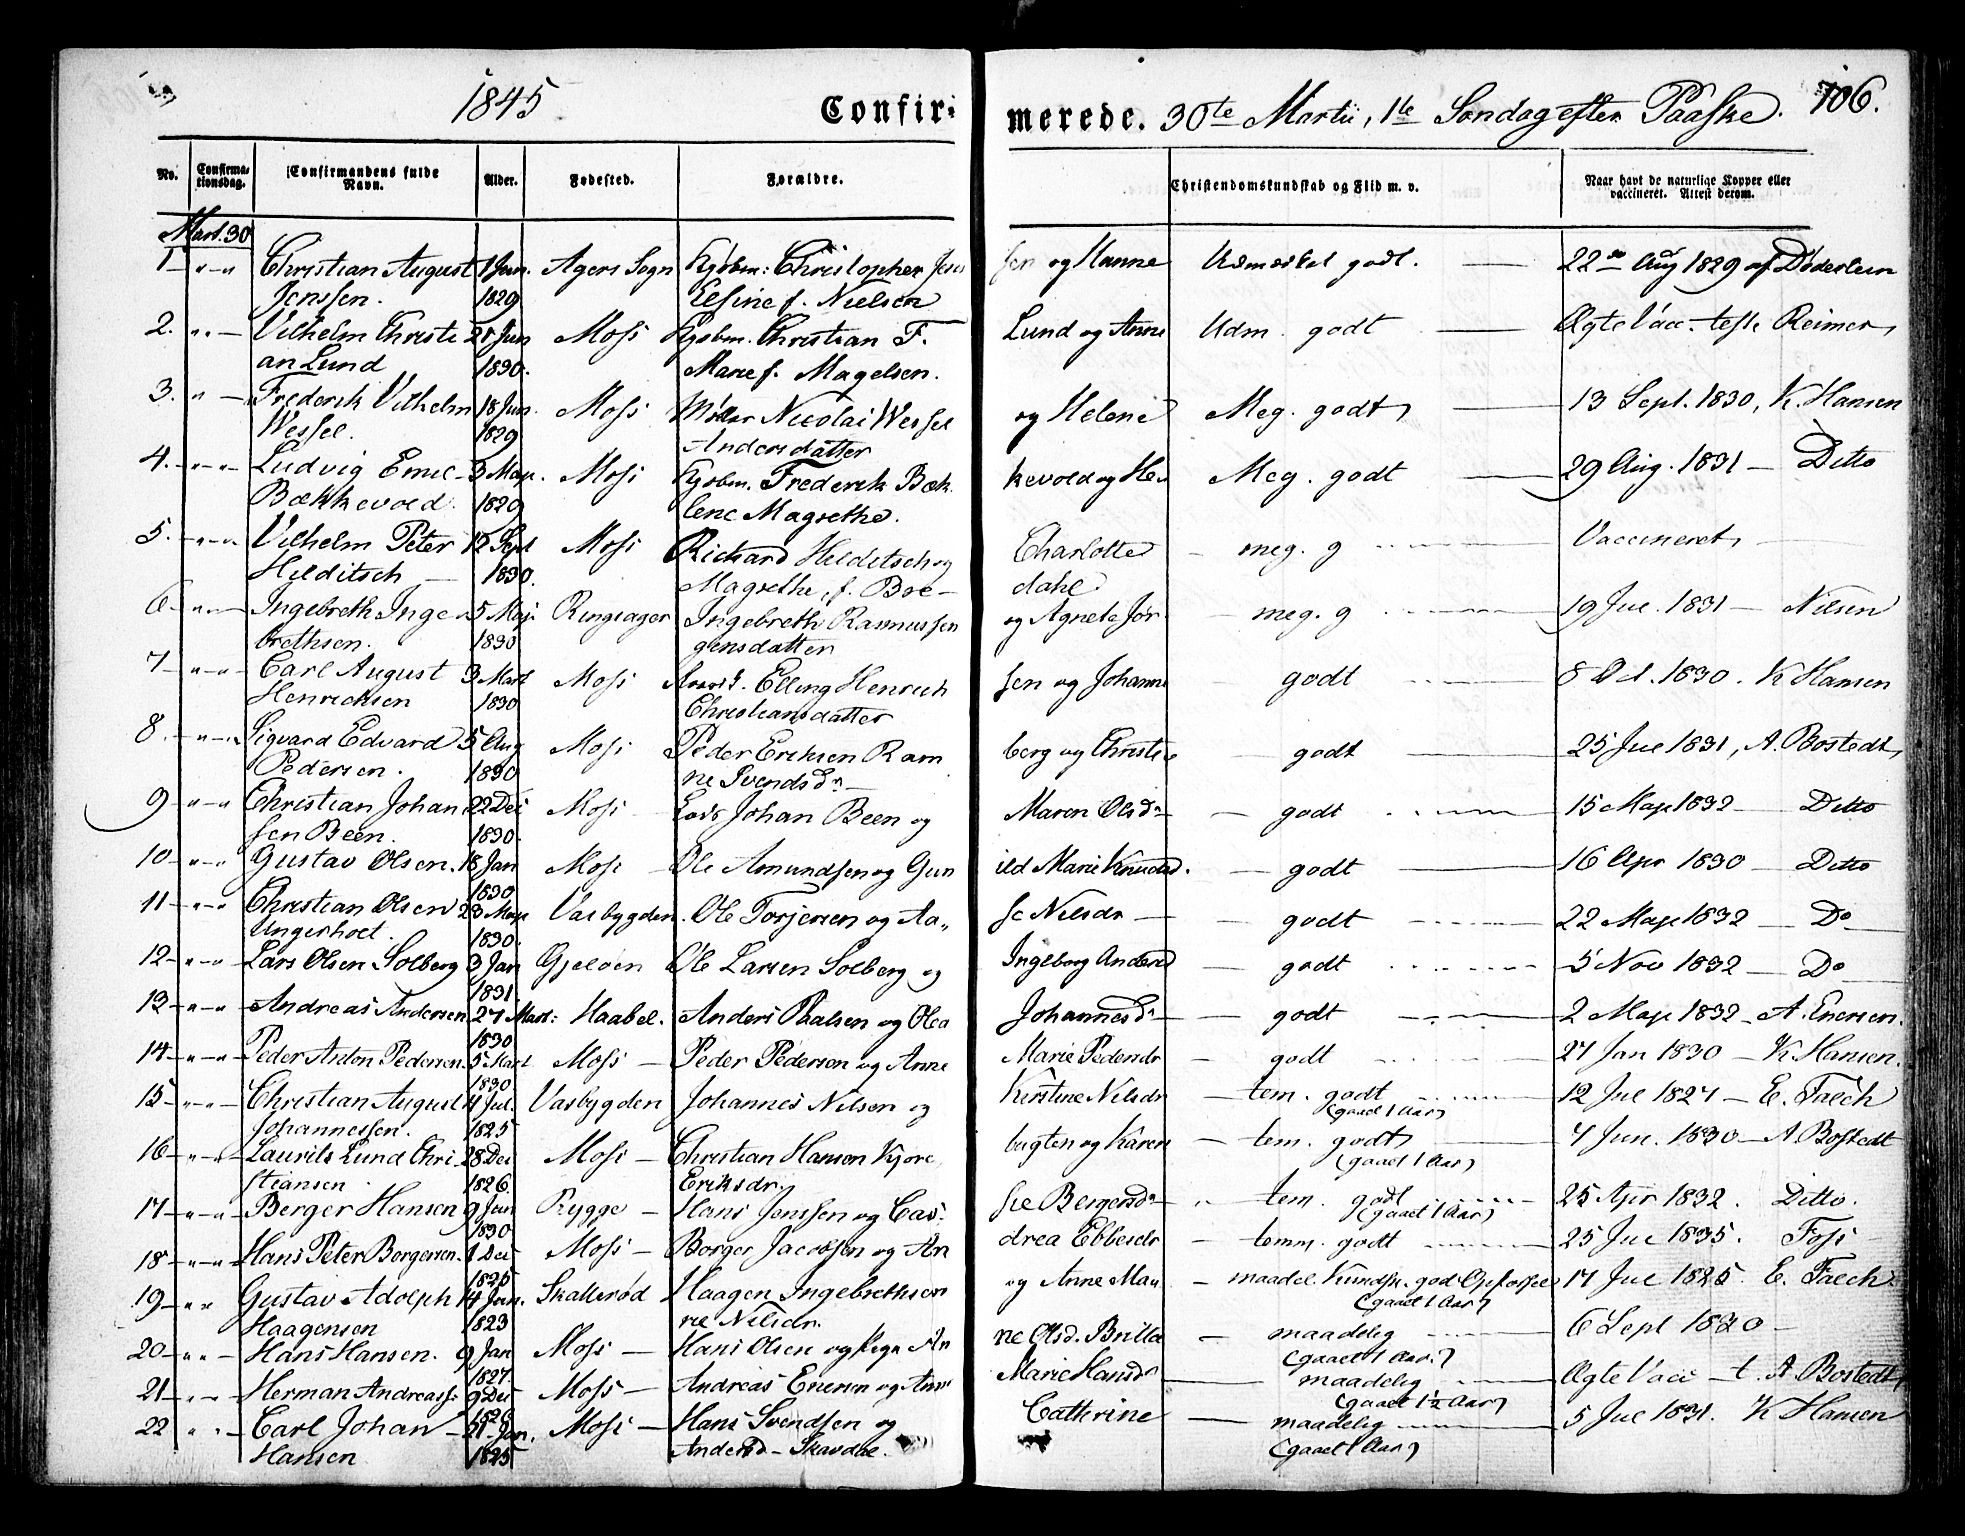 1845 Confir- merede. 30te Martii, 1te Søndag efter Paaske. 106.
No. Confirma- tionsdag. Confirmandens fulde Navn. Alder. Fødested. Forældre. Christendomskundskab og Flid m. v. Naar havt de naturlige Kopper eller vaccineret. Attest derom.
Mart. 30
1 Christian August 1 Jan. Agers Sogn Kjøbm: Christopher Jens sen og Hanne Udmærket godt. 22 Aug 1829 af Døderlein
Jenssen. 1829 Elsine f. Nielsen
2. Vilhelm Christi 21 Jun Moss Kjøbm. Christian F. Lund og Anne Udm. godt Ægte Vacc. teste Reimer,
an Lund 1830. Marie f. Magelsen.
3. Frederik Vilhelm 18 Jun. Moss Møller Nicolai Wessel og Helene Meg. godt 13 Sept. 1830, K. Hansen
Wessel. 1829 Andersdatter
4. Ludvig Emil 3 Maj. Moss Kjøbm. Frederik Bæk kevold og He Meg. godt 29 Aug. 1831 Ditto
Bækkevold. 1829 lene Magrethe.
5. Vilhelm Peter 12 Sept Moss Richard Helditsch og Charlotte meg. g Vaccineret
Helditsch 1830. Magrethe, f. Bre- dahl
6 Ingebreth Inge 5 Maj. Ringsager Ingebreth Rasmussen og Agnete Jør meg. g 19 Jul. 1831 Nilsen
brethsen. 1830 gensdatter
7 Carl August 3 Mart Moss Elling Henrich sen og Johanne godt 8 Oct. 1830. K Hansen
Henrichsen 1830 Christiansdatter
8. Sigvard Edvard 5 Aug Moss Peder Eriksen Ram berg og Christi godt 25 Jul 1831, A. Bostedt,
Pedersen. 1830 ne Svendsdr
9 Christian Johan 22 Dec Moss Lods Johan Been og Maren Olsdr godt 15 Maji 1832 Ditto
sen Been. 1830.
10 Gustav Olsen. 18 Jan Moss Ole Amundsen og Gun ild Marie Knudsd. godt 16 Apr 1830 Ditto
1830
11 Christian Olsen 23 Maji Vasbygden. Ole Torjersen og Aa„ se Nilsdr godt 22 Maji 1832 Do
Ungerhoet. 1830.
12 Lars Olsen Solberg 3 Jan Gjeløen Ole Larsen Solberg og Ingeborg Andersd godt 5 Nov 1832 Do
1831
13 Andreas Andersen 27 Mart: Haabel. Anders Paalsen og Olea Johannesdr godt 2 Maji 1832 A. Enersen.
1830
14 Peder Anton Pedersen. 5 Mart Moss Peder Pedersen og Anne Marie Pedersdr godt 27 Jan 1830 K Hansen.
1830
15 Christian August 4 Jul. Vasbygden Johannes Nilsen og Kirstine Nilsdr tem. godt 12 Jul 1827 E. Falch
Johannessen. 1825 (gaaet 1 Aar)
16 Laurits Lund Chri 28 Dec Moss Christian Hansen Kjøre bugten og Karen tem. godt 7 Jun. 1830 A Bostedt
stiansen 1826. Eriksdr. (gaaet 1 Aar)
17 Berger Hansen 9 Jun Rygge Hans Jenssen og Cas- sie Bergersdr tem. godt 25 Apr 1832. Ditto.
1830 (gaaet 1 Aar)
18 Hans Peter Borgersen. 1 Dec Moss Borger Jacobsen og An drea Ebbesdr temm. godt 25 Jul 1835. Foss
1825
19 Gustav Adolph 14 Jan. Skallerød Haagen Ingebrethsen og Anne Ma maadel. Kundsk. god Opførsel 17 Jul 1825. E. Falch
Haagensen 1829 rie Nilsdr. (gaaet 1 Aar)
20 Hans Hansen. 9 Jan Moss Hans Olsen og An ne Olsd. Brilla maadelig 6 Sept 1830
1827 (gaaet 1 Aar.)
21 Herman Andreass. 9 Dec Moss Andreas Enersen og Anne Marie Hansdr maadelig Ægte Vacc t. A. Bostedt,
(gaaet 1½ Aar)
22 Carl Johan 21 Jan. Moss Hans Svendsen og Cathrine maadelig 5 Jul 1831. K Hansen
Hansen 1825 Andersd Skavdal. (gaaet 1 Aar)